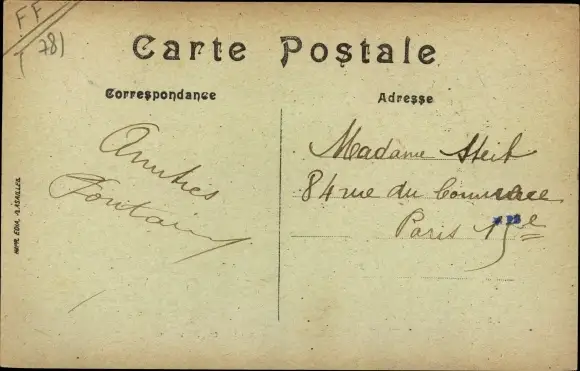 FF
(78)
Carte Postale
Correspondance
Adresse
Amitiés
Fontaine
Madame Steib
84 rue du Commerce
Paris 15e
IMPR. EDIA. VERSAILLES